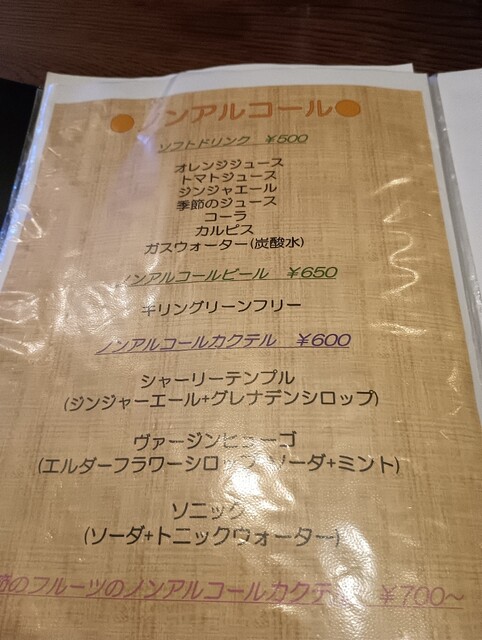 ●ノンアルコール●
ソフトドリンク ¥500
オレンジジュース
トマトジュース
ジンジャエール
季節のジュース
コーラ
カルピス
ガスウォーター(炭酸水)
ノンアルコールビール ¥650
キリングリーンフリー
ノンアルコールカクテル ¥600
シャーリーテンプル
(ジンジャーエール+グレナデンシロップ)
ヴァージンヒューゴ
(エルダーフラワーシロップ+ソーダ+ミント)
ソニック
(ソーダ+トニックウォーター)
節のフルーツのノンアルコールカクテ ¥700～